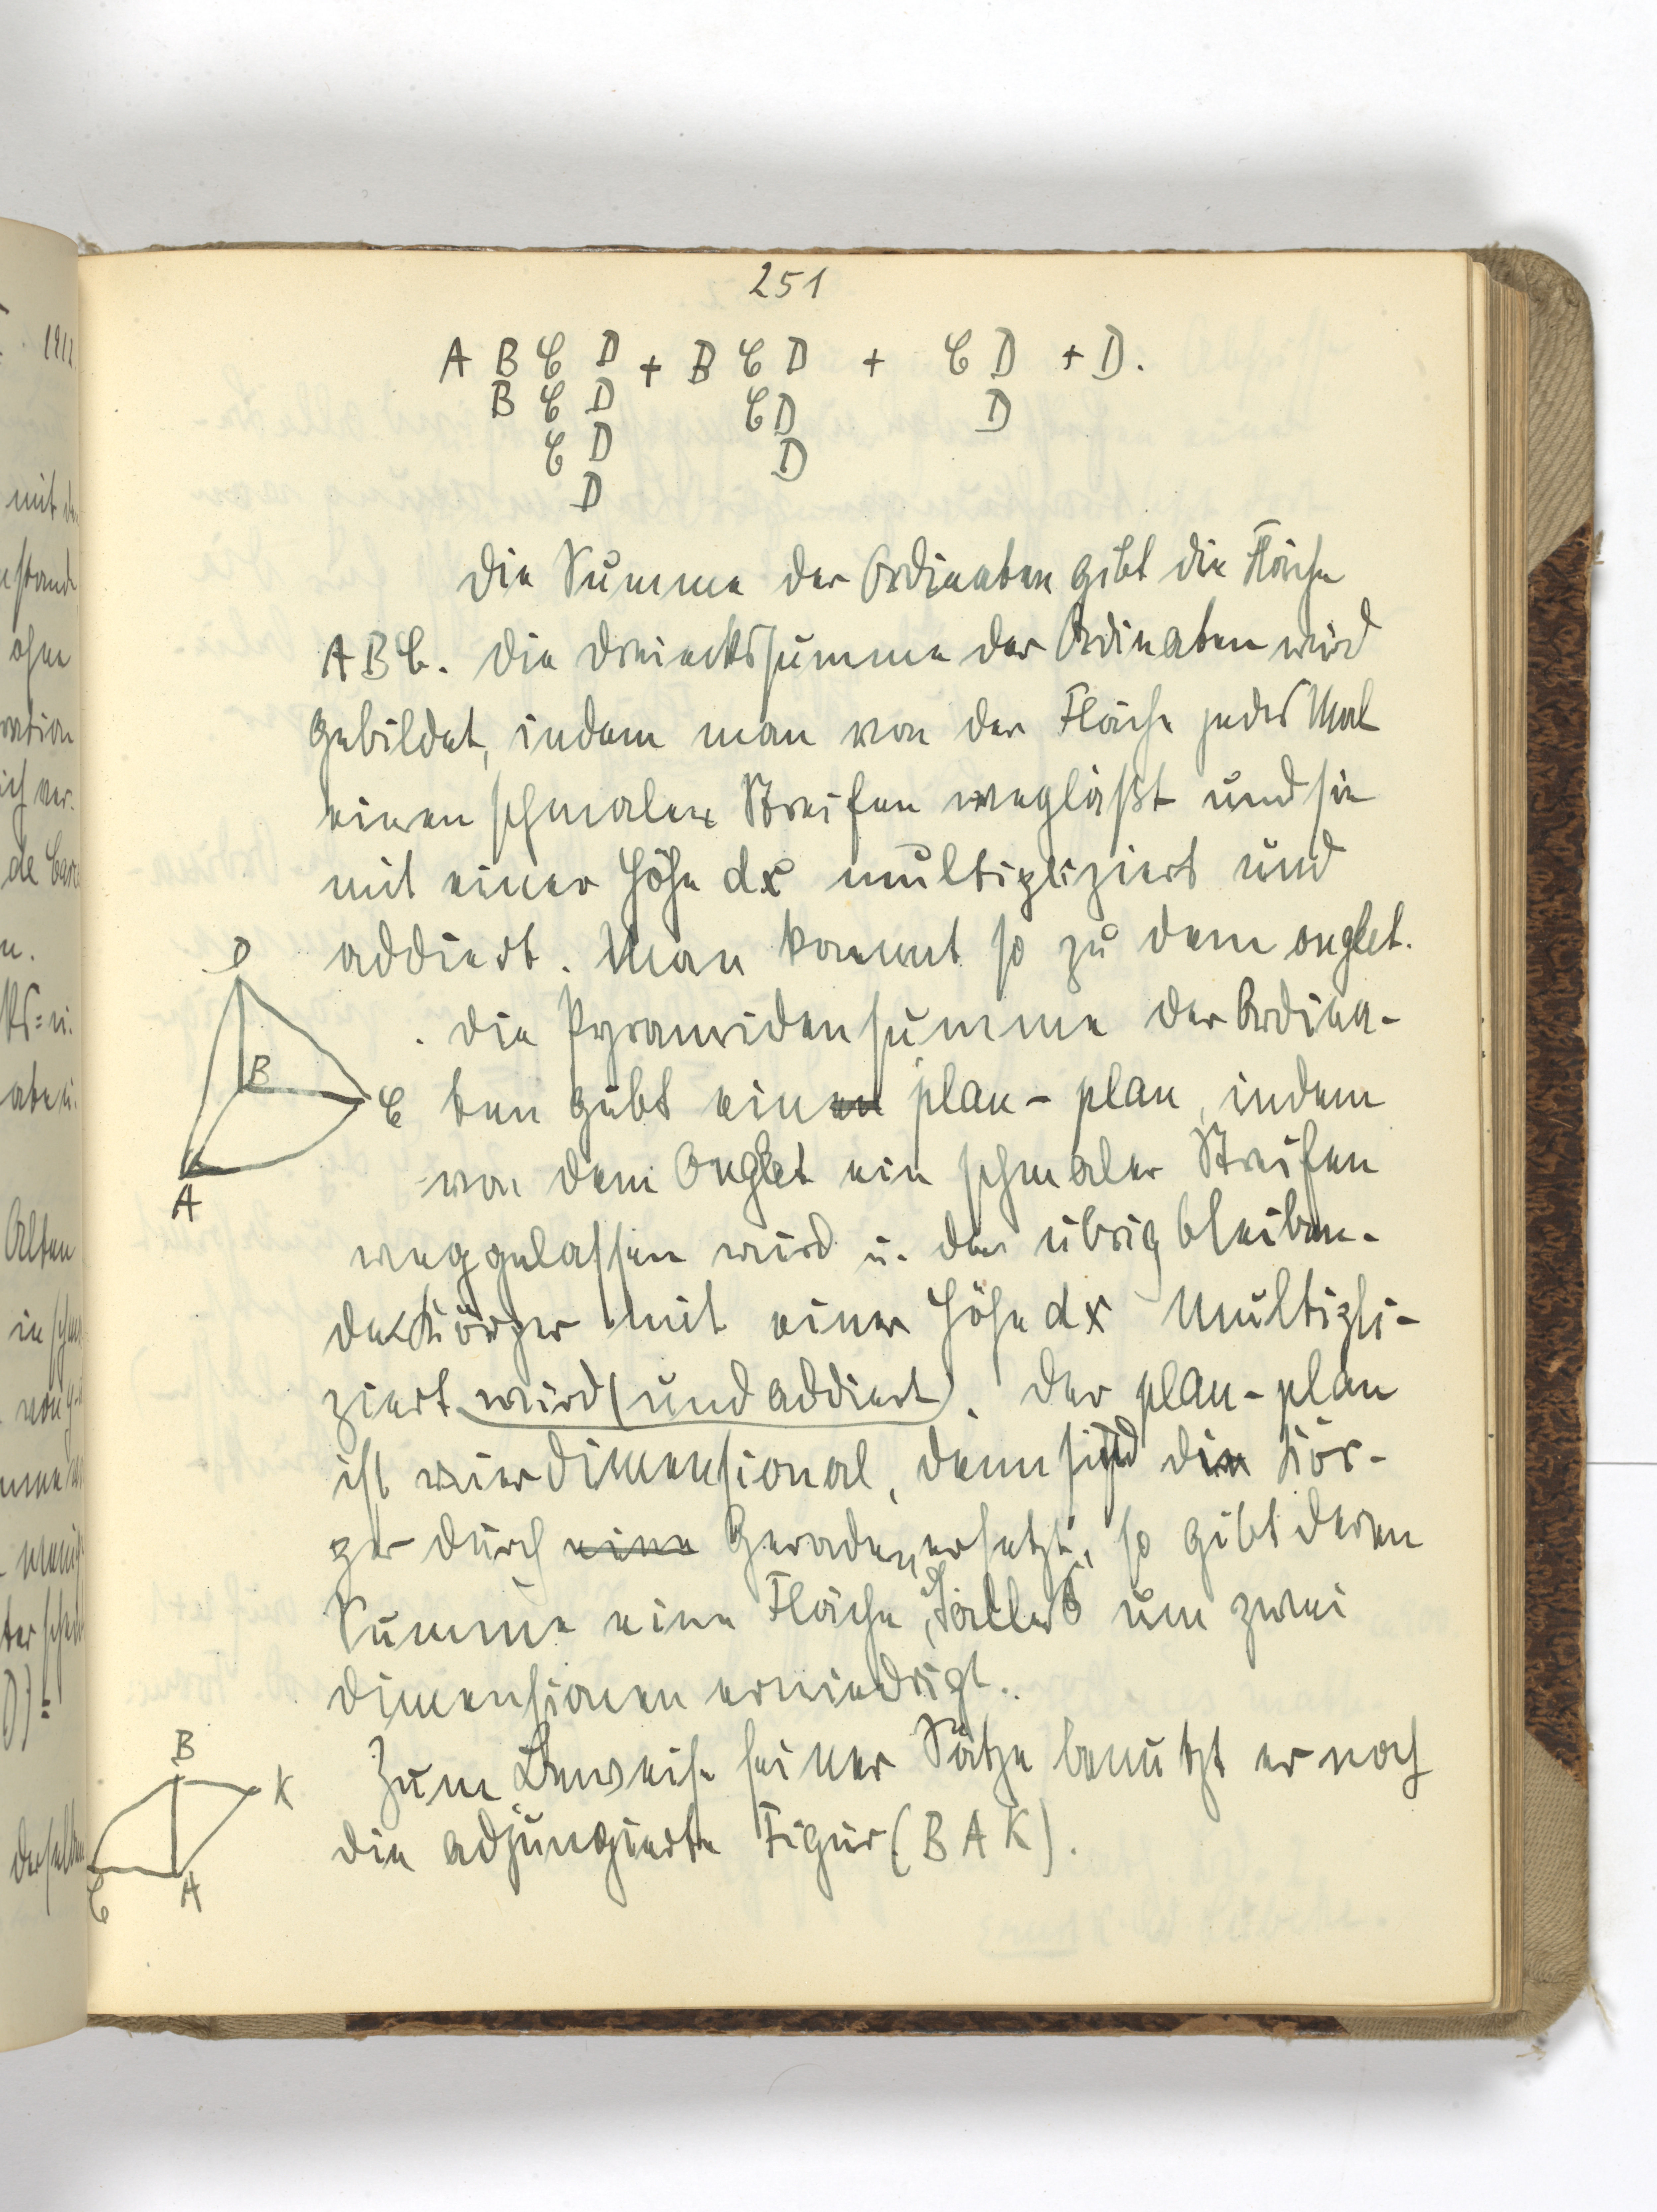 251
A B C D + B C D + C D + D.
B C D C D D
C D D
D
Die Summe der Ordinaten gibt die Fläche
A B C. Die Dreieckssumme der Ordinaten wird
gebildet, indem man von der Fläche jedes Mal
einen schmalen Streifen wegläßt und sie
mit einer Höhe dx multipliziert und
addiert. Man kommt so zu dem onglet.
Die Pyramidensumme der Ordina-
ten gibt einen plan-plan, indem
von dem Onglet ein schmaler Streifen
weggelassen wird u. der übrig bleiben-
de Körper mit einer Höhe dx multipli-
ziert wird (und addiert). Der plan-plan
ist vierdimensional, denn sind die Kör-
per durch eine Geraden ersetzt, so gibt deren
Summe eine Fläche, d alles um zwei
Dimensionen erniedrigt.
Zum Beweise seiner Sätze benutzt er noch
die adjungierte Figur (B A K).
D
B
C
A
B
K
C
A
1912
mit den
ohne
Alten